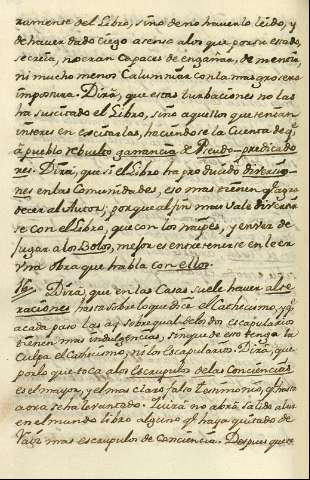 ramense del Libro, sino de no haverlo leido, y
de haver dado ciego asenso a los que por su estado,
secreta, no eran capaces de engañar, de mentir,
ni mucho menos Calumniar con la mas grosera
impostura. Dirà, que estas turbaciones no las
ha suscitado el Libro, sino aquellos que tenian
interes en excitarlas, haciendose la Cuenta de q.e
à pueblo rebuelto ganancia de Pseudo-predicado
res. Dirà, que si el Libro ha producido diversio-
nes en las Comunidades, eso mas tienen q.e agra
decer al Autor; porque al fin mas vale divertir
se con el Libro, que con los naipes, y en vez de
jugar a los Bolos, mejor es entretenerse en leer
vna obra que habla con ellos.
16. Dirà que en las Casas suele haver alte-
raciones hasta sobre lo que dirà el Cathecismo, y q.e
a cada paso las ay sobre qual de los dos escapularios
tienen mas indulgencias, sin que de eso tenga la
Culpa el Cathecismo, ni los Escapularios. Dirà, que
por lo que toca a los Escrupulos de las Conciencias
es el mayor, y el mas claro falso testimonio, q.e hasta
aora se ha levantado. Quizà no abrà salido a luz
en el mundo libro alguno q.e haya quitado de
raiz mas escrupulos de Conciencia. Despues que se